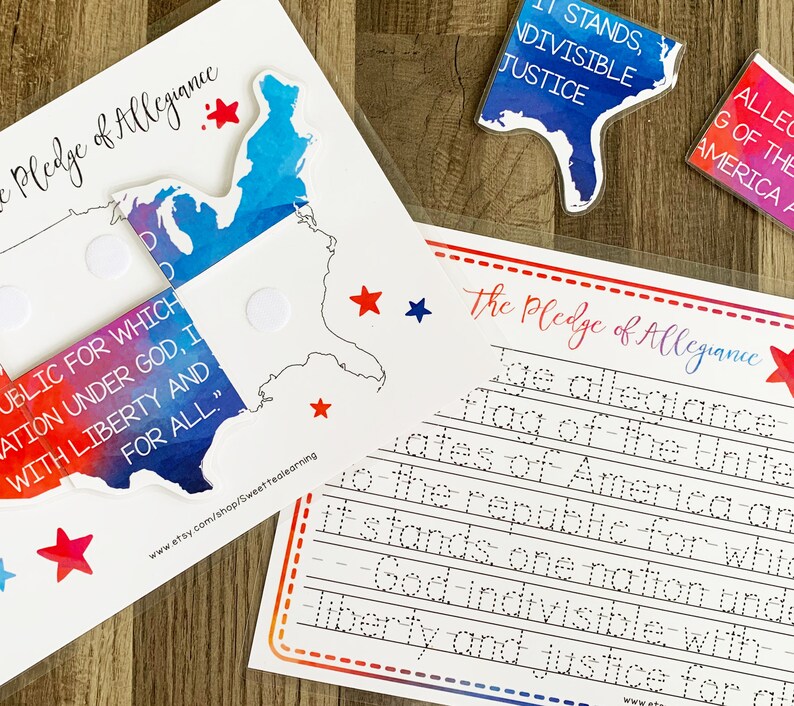 The Pledge of Allegiance
UBLIC FOR WHICH
NATION UNDER GOD, I
WITH LIBERTY AND
FOR ALL."
www.etsy.com/shop/Sweettealearning
IT STANDS,
NDIVISIBLE
JUSTICE
ALLEG
G OF THE
AMERICA A
The Pledge of Allegiance
ge allegiance
flag of the Unite
ates of America an
to the republic for whic
it stands one nation und
God indivisible with
liberty and justice for a
www.ets